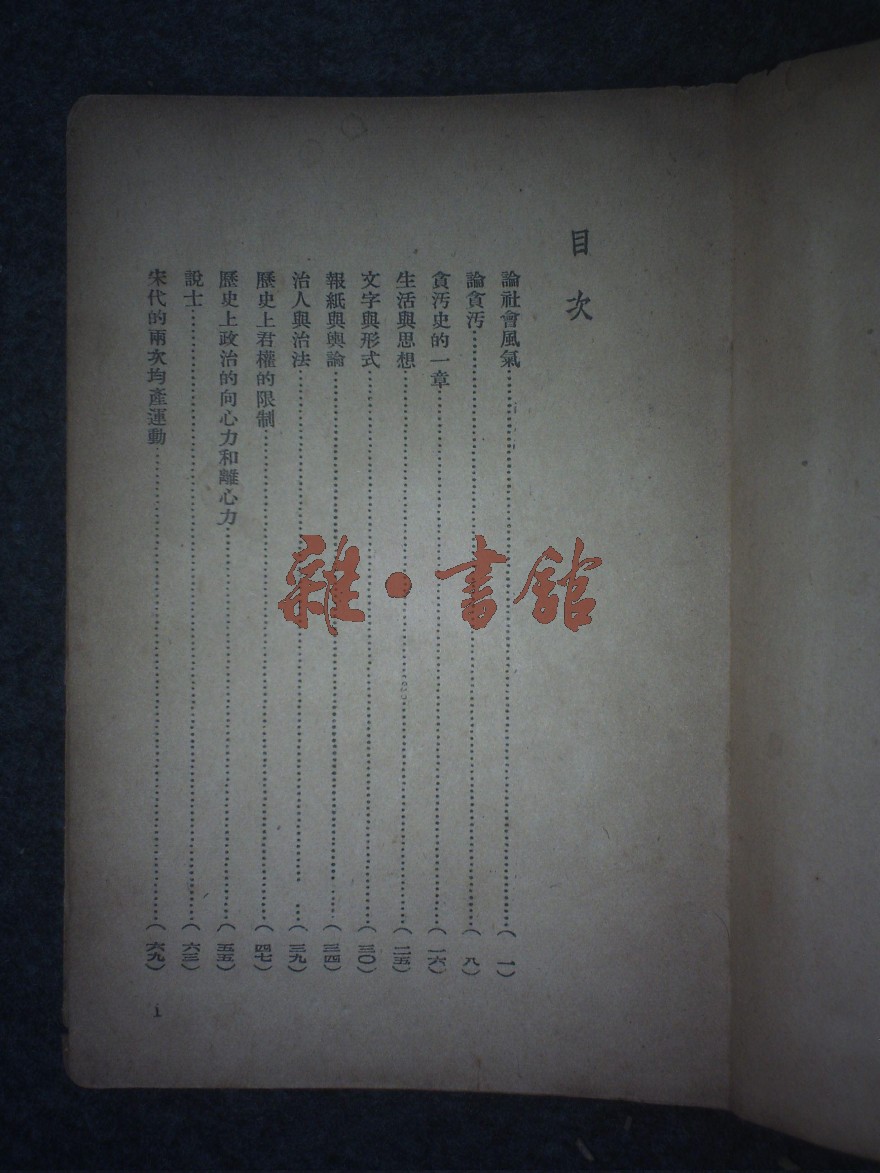 目次
論社會風氣……(一)
論貪汚……(八)
貪汚史的一章……(一六)
生活與思想……(二五)
文字與形式……(三〇)
報紙與輿論……(三四)
治人與治法……(三九)
歷史上君權的限制……(四七)
歷史上政治的向心力和離心力……(五五)
說士……(六三)
宋代的兩次均產運動……(六九)
1
雜·書館